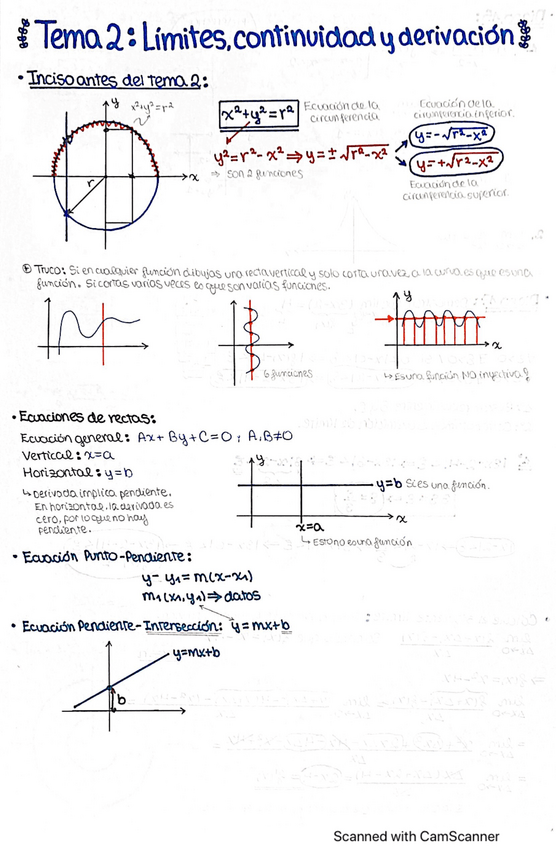 Tema 2: Límites, continuidad y derivación
• Inciso antes del tema 2:
y
x²+y²=r²
r
x
x²+y²=r²
Ecuación de la
circunferencia
y²=r²-x² ⇒ y=±√r²-x²
⇒ son 2 funciones
Ecuación de la
circunferencia inferior.
y=-√r²-x²
y=+√r²-x²
Ecuación de la
circunferencia superior.
Truco: Si en cualquier función dibujas una recta vertical y solo corta una vez a la curva, es que es una
función. Si cortas varias veces es que son varias funciones.
6 funciones
y
x
↳ Es una función NO inyectiva
• Ecuaciones de rectas:
Ecuación general: Ax+By+C=0; A,B≠0
Vertical: x=a
Horizontal: y=b
↳ Derivada implica pendiente.
En horizontal, la derivada es
cero, por lo que no hay
pendiente.
y
y=b Si es una función.
x
x=a
↳ Esto no es una función
• Ecuación Punto-Pendiente:
y-y₁=m(x-x₁)
m₁(x₁,y₁)⇒datos
• Ecuación Pendiente-Intersección: y=mx+b
y=mx+b
b
Scanned with CamScanner